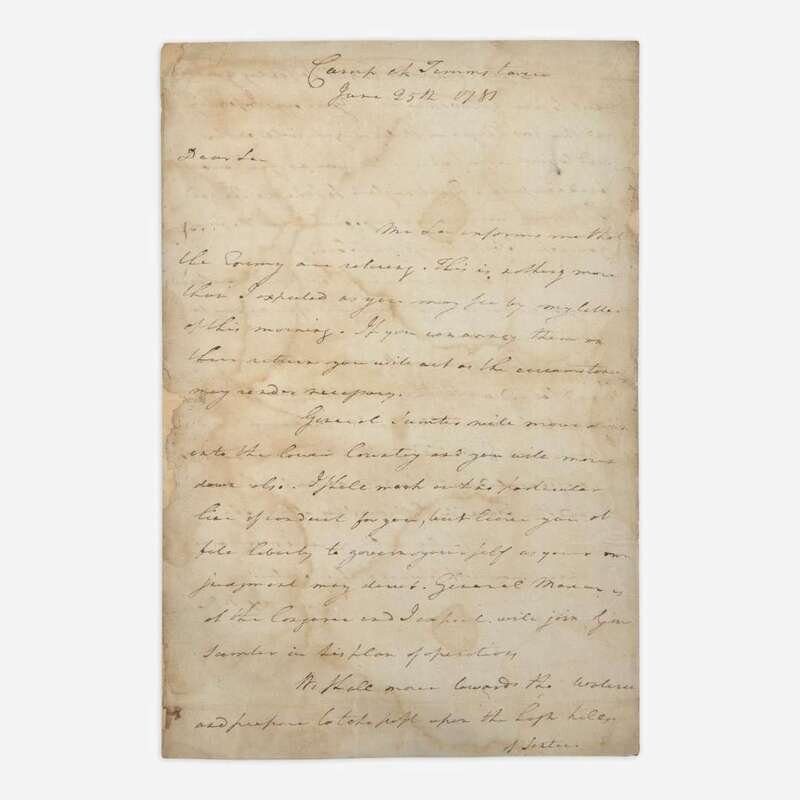 Camp at Timmstown
June 25th 1781
Dear Sir
Mr Lee informs me that
the Enemy are retiring. This is nothing more
than I expected as you may see by my letter
of this morning. If you can annoy them on
their return you will act as the circumstances
may render necessary.
General Sumter will move
into the lower Country and you will move
down also. I shall mark out no particular
line of conduct for you, but leave you at
full liberty to govern yourself as your own
judgment may direct. General Marion is
at the Congaree and I expect will join Gen
Sumter in his plan of operations
We shall move towards the
and prepare to take post upon the high hills
of Santee